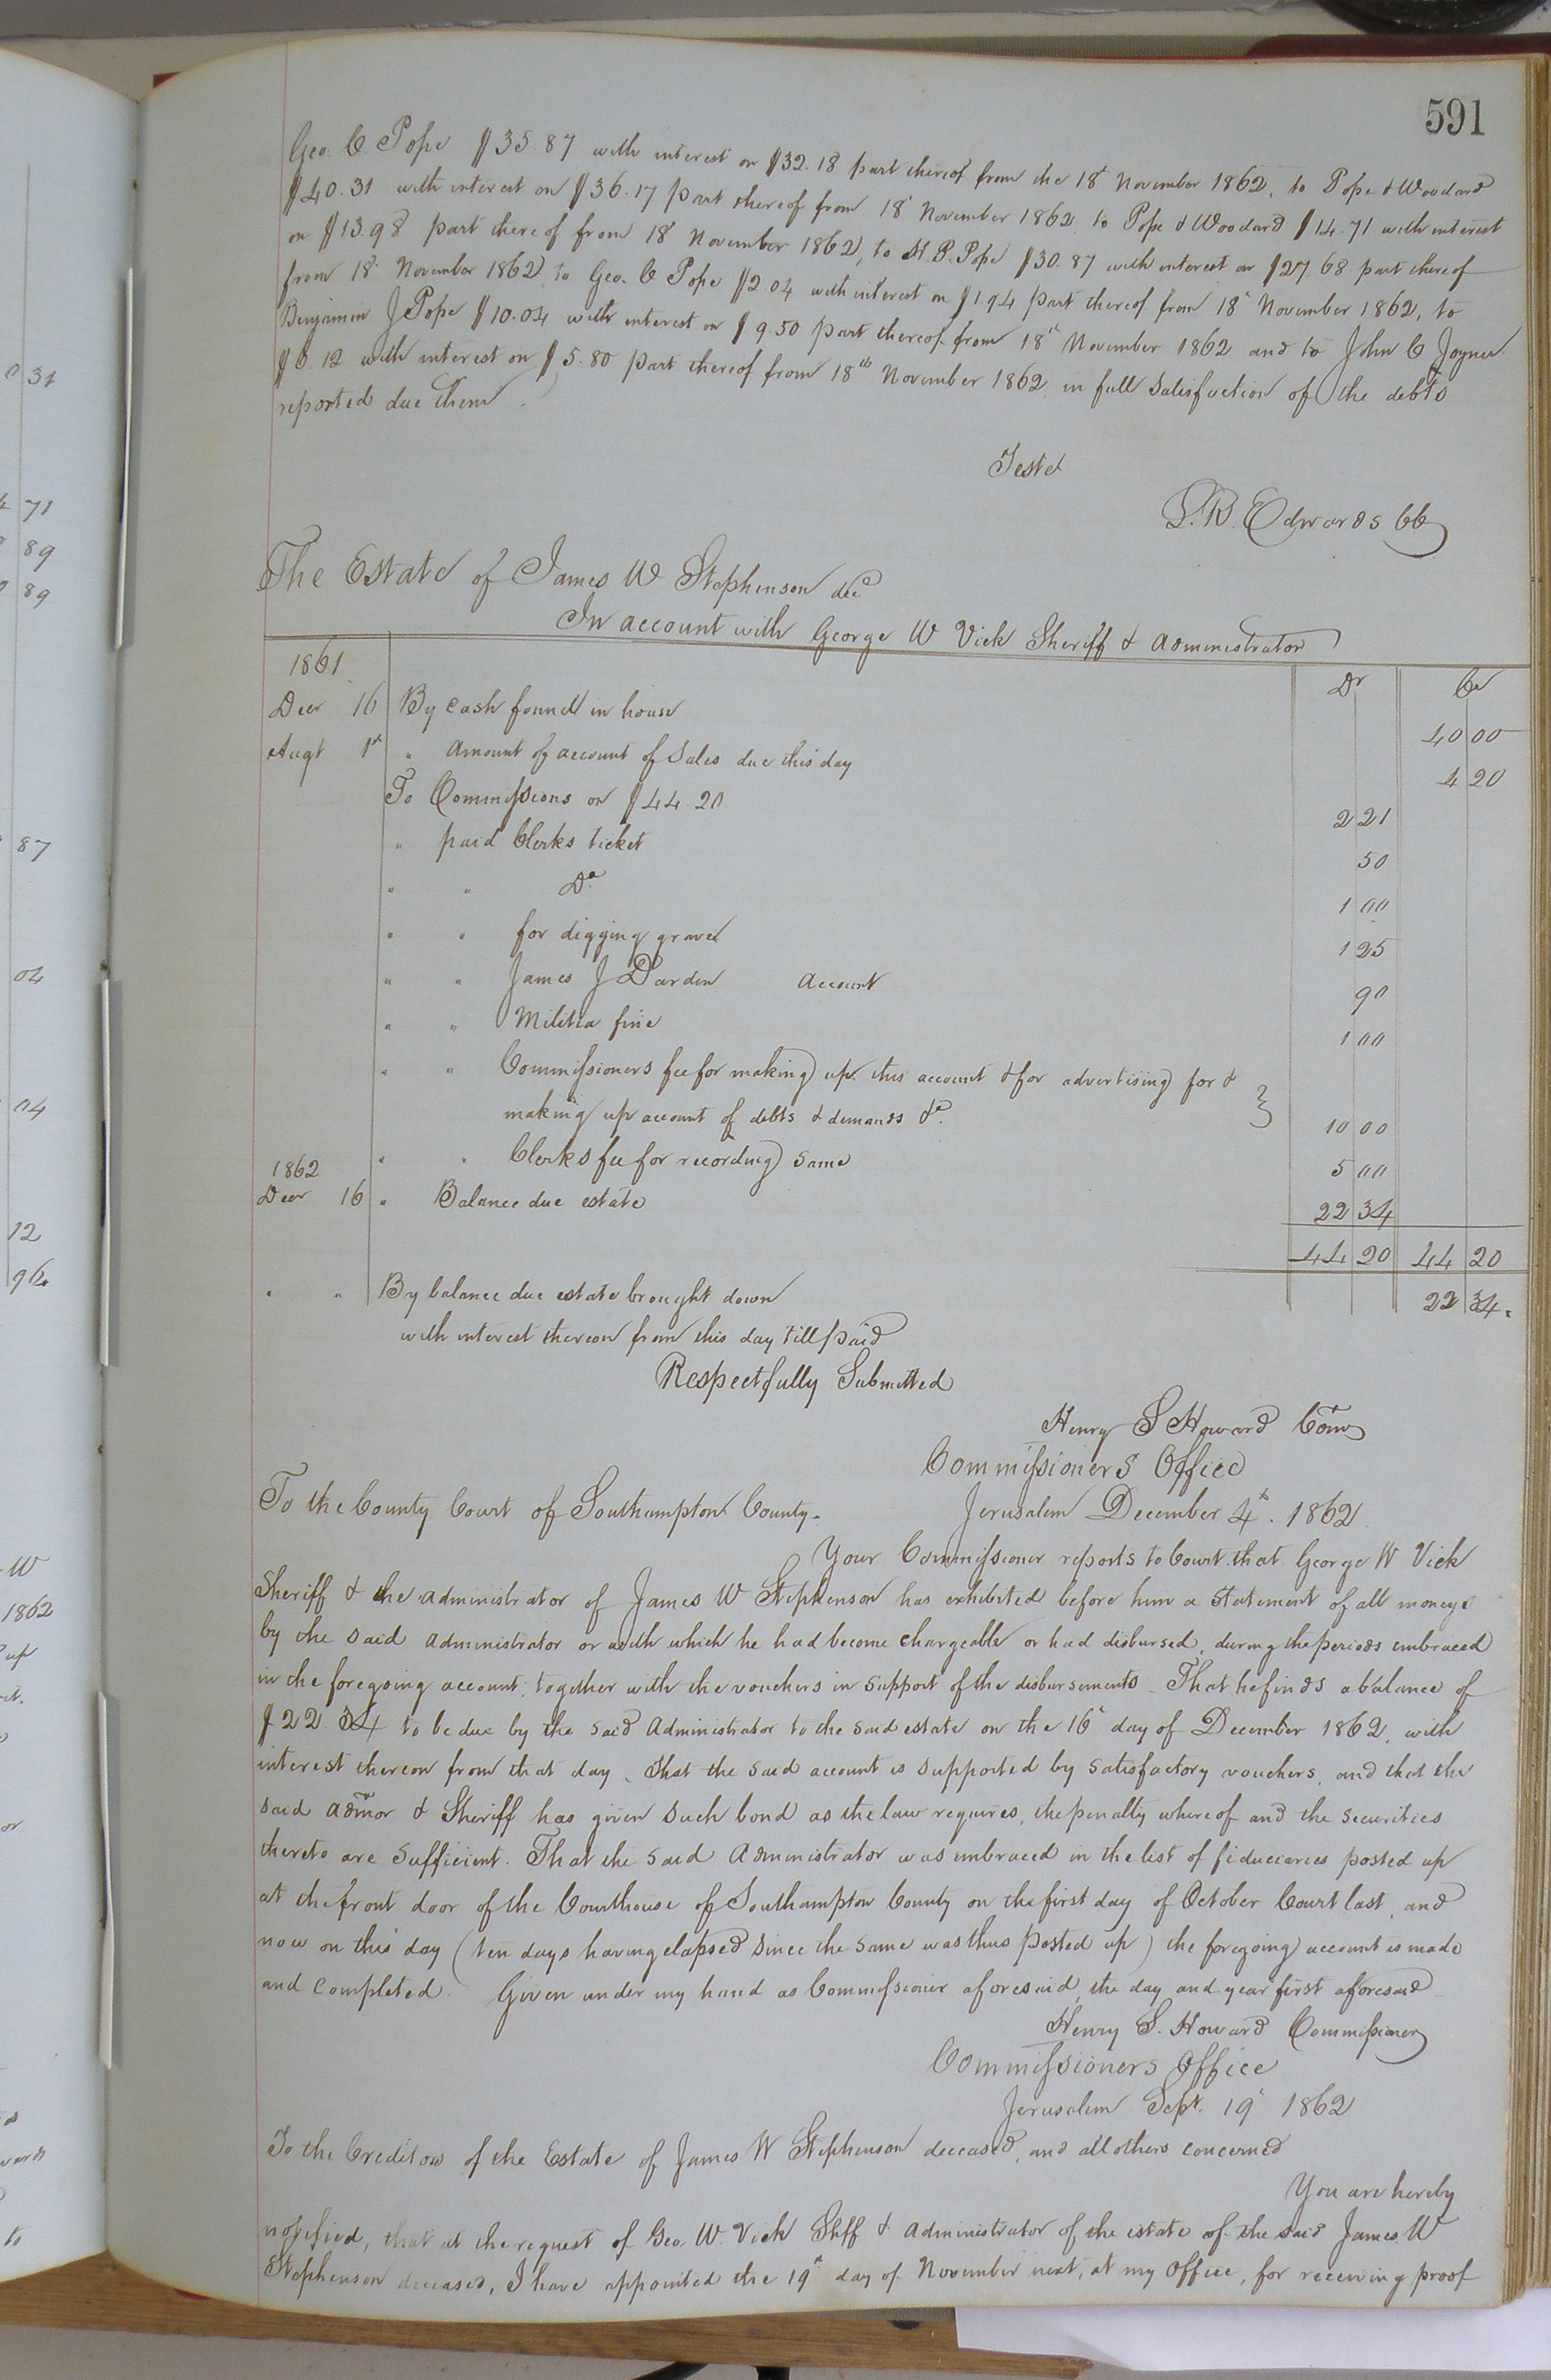 591
Geo. C. Pope $35.87 with interest on $32.18 part thereof from the 18th November 1862, to Pope & Woodard
$40.31 with interest on $36.17 part thereof from 18th November 1862 to Pope & Woodard $14.71 with interest
on $13.98 part thereof from 18th November 1862, to H. P. Pope $30.87 with interest on $27.68 part thereof
from 18th November 1862, to Geo. C Pope $2.04 with interest on $1.94 part thereof from 18th November 1862, to
Benjamin J Pope $10.04 with interest on $9.50 part thereof from 18th November 1862 and to John C Joyner
$6.12 with interest on $5.80 part thereof from 18th November 1862 in full satisfaction of the debts
reported due them.
Teste
L. R. Edwards CC
The Estate of James W Stephenson decd
In account with George W Vick Sheriff & Administrator
1861 Dr Cr
Decr 16 By cash found in house 40 00
Augt 1st " Amount of account of Sales due this day 4 20
To Commissions on $44.20 2 21
" paid Clerks ticket 50
" " Do 1 00
" " for digging grave 1 25
" " James J Darden Account 90
" " Militia fine 1 00
" " Commissioners fee for making up this account & for advertising for &
making up account of debts & demands &c. 10 00
" " Clerks fee for recording same 5 00
1862
Decr 16 " Balance due estate 22 34
44 20 44 20
" " By balance due estate brought down 22 34.
with interest thereon from this day till paid
Respectfully Submitted
Henry S Howard Comr
Commissioners Office
To the County Court of Southampton County. Jerusalem December 4th. 1862
Your Commissioner reports to Court that George W Vick
Sheriff & the administrator of James W Stephenson has exhibited before him a Statement of all moneys
by the said administrator or with which he had become chargeable or had disbursed, during the periods embraced
in the foregoing account, together with the vouchers in support of the disbursements. That he finds a balance of
$22.34 to be due by the said Administrator to the said estate on the 16th day of December 1862, with
interest thereon from that day. That the said account is supported by satisfactory vouchers, and that the
said admor & Sheriff has given such bond as the law requires, the penalty whereof and the securities
thereto are sufficient. That the said Administrator was embraced in the list of fiduciaries posted up
at the front door of the Courthouse of Southampton County on the first day of October Court last, and
now on this day (ten days having elapsed since the same was thus posted up) the foregoing account is made
and completed. Given under my hand as Commissioner aforesaid, the day and year first aforesaid
Henry S. Howard Commissioner
Commissioners Office
Jerusalem Sept. 19th 1862
To the Creditors of the Estate of James W Stephenson deceased, and all others concerned
You are hereby
notified, that at the request of Geo. W. Vick Shff & Administrator of the estate of the said James W
Stephenson deceased, I have appointed the 19th day of November next, at my Office, for receiving proof